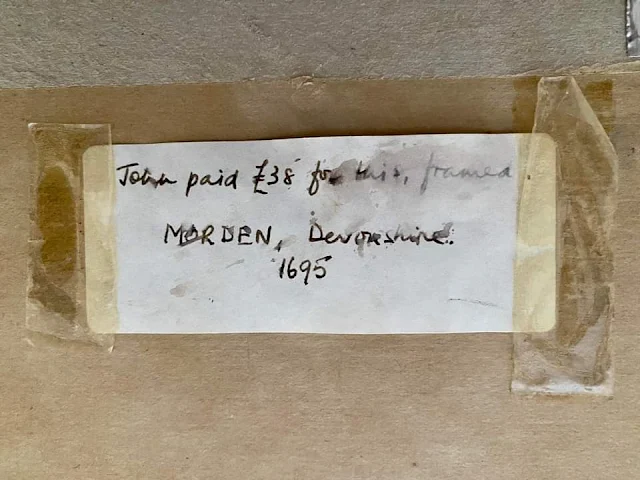 John paid £38 for this, framed
MORDEN, Devonshire.
1695